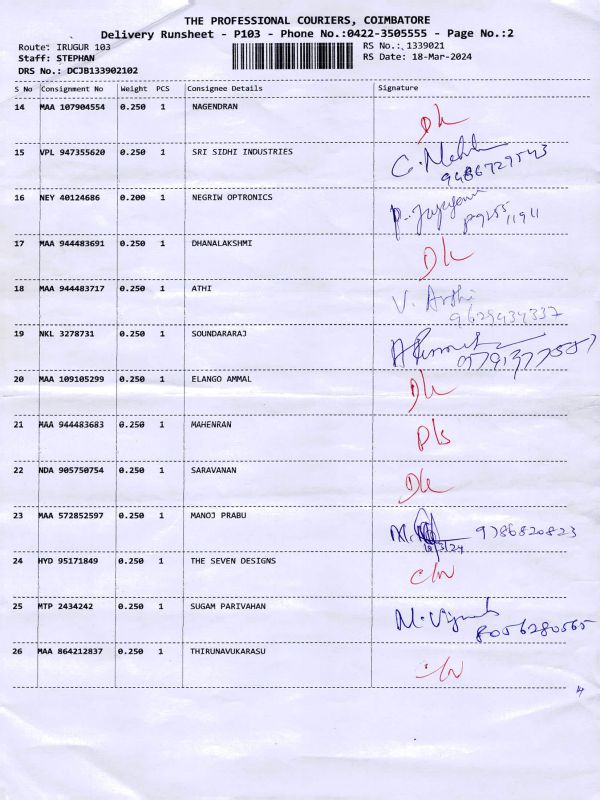 THE PROFESSIONAL COURIERS, COIMBATORE
Delivery Runsheet - P103 - Phone No.:0422-3505555 - Page No.:2
Route: IRUGUR 103 RS No.: 1339021
Staff: STEPHAN RS Date: 18-Mar-2024
DRS No.: DCJB133902102
S No Consignment No Weight PCS Consignee Details Signature
14 MAA 107904554 0.250 1 NAGENDRAN
15 VPL 947355620 0.250 1 SRI SIDHI INDUSTRIES
9486729543
16 NEY 40124686 0.200 1 NEGRIW OPTRONICS
17 MAA 944483691 0.250 1 DHANALAKSHMI
18 MAA 944483717 0.250 1 ATHI V. Arthi
9629434337
19 NKL 3278731 0.250 1 SOUNDARARAJ
20 MAA 109105299 0.250 1 ELANGO AMMAL
21 MAA 944483683 0.250 1 MAHENRAN
22 NDA 905750754 0.250 1 SARAVANAN
23 MAA 572852597 0.250 1 MANOJ PRABU 9786820823
18/3/24
24 HYD 95171849 0.250 1 THE SEVEN DESIGNS
25 MTP 2434242 0.250 1 SUGAM PARIVAHAN
8056280565
26 MAA 864212837 0.250 1 THIRUNAVUKARASU